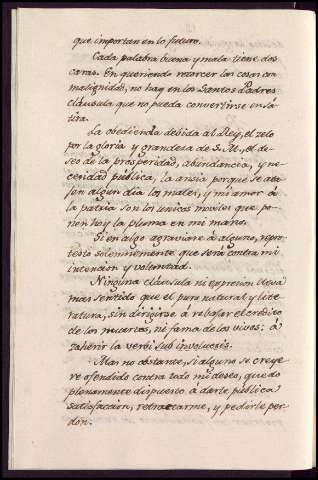 que importan en lo futuro.
Cada palabra buena y mala tiene dos
caras. En queriendo retorcer las cosas con
malignidad, no hay en los Santos Padres
clàusula que no pueda convertirse en Sá
tira.
La obediencia debida al Rey, el zelo
por la gloria y grandeza de S. M., el de
seo de la prosperidad, abundancia, y ne
cesidad pública, la ansia porque se ata
jen algun dia los males, y mi amor à
la patria son los unicos moviles que po
nen hoy la pluma en mi mano.
Si en algo agraviare à alguno, repro
texto solemnemente que será contra mi
intencion y voluntad.
Ninguna clàusula ni expresion lleva
mas sentido que el puro natural y lite
ratura, sin dirigirse à rebajar el credito
de los muertos, ni fama de los vivos: à
zaherir la
Mas no obstante, si alguno se creye
re ofendido contra todo mi deseo, quedo
plenamente dispuesto à darle pública
satisfaccion, retractarme, y pedirle per
don.